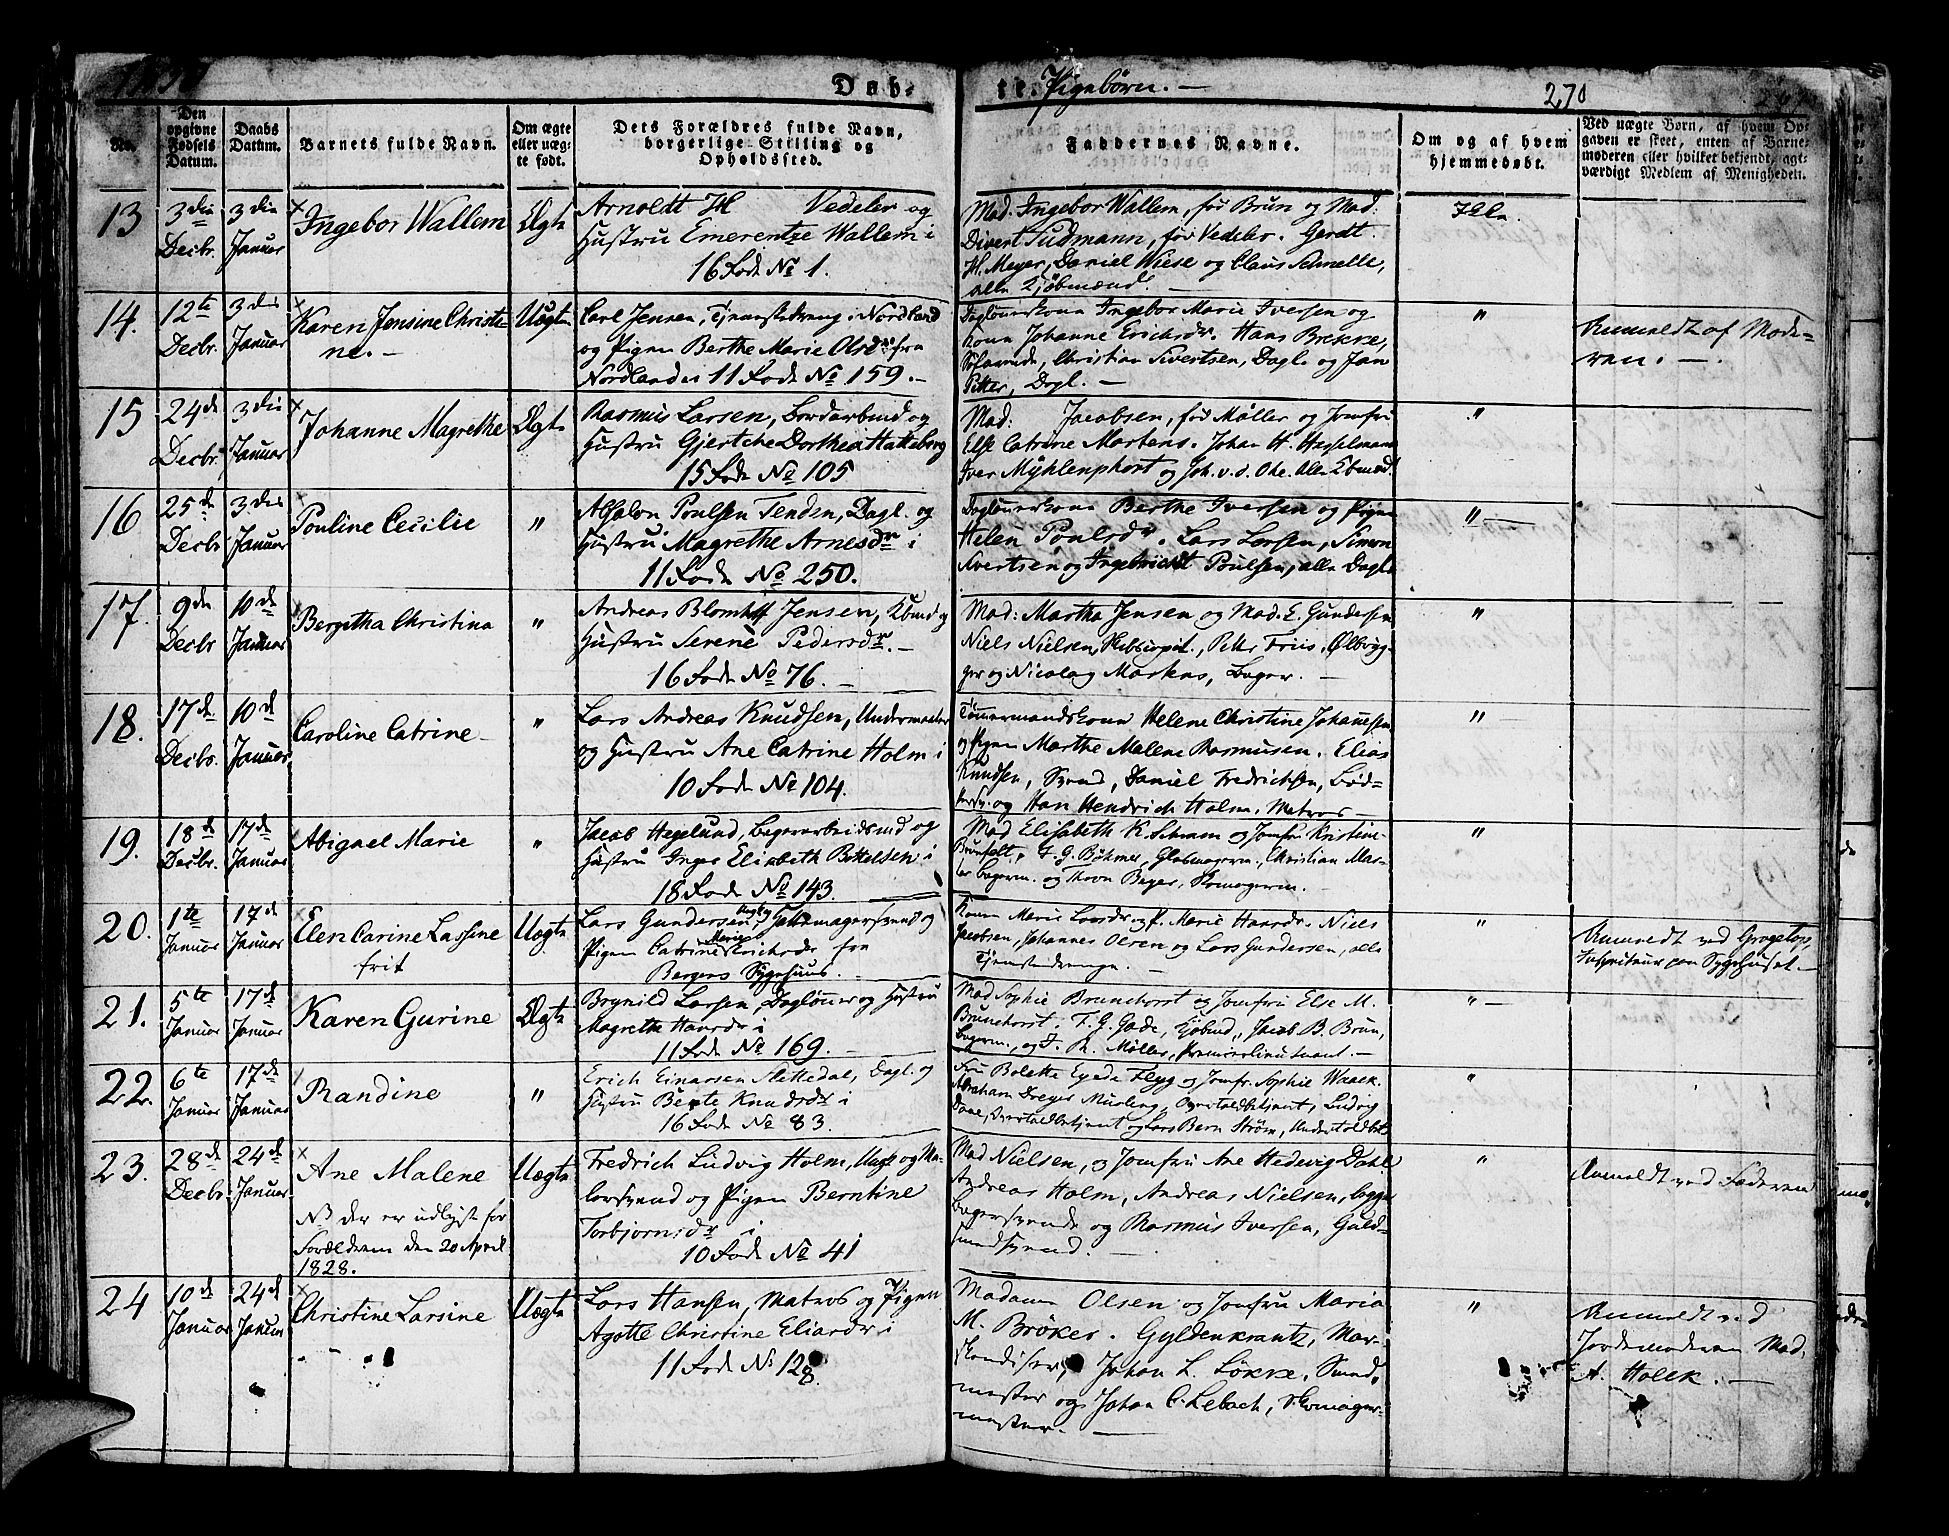 Døb- te. Pigebørn. — 270
No.
Den opgivne Fødsels Datum.
Daabs Datum.
Barnets fulde Navn.
Om ægte eller uægte født.
Dets Forældres fulde Navn, borgerlige Stilling og Opholdsfted.
Faddernes Navne.
Om og af hvem hjemmedøbt.
Ved uægte Børn, af hvem Opgaven er skeet, enten af Barnemoderen eller hvilket bekjendt, agtværdigt Medlem af Menigheden.
13 3die Decbr. 3die Januar Ingebor Wallem Ægte
Arnoldt H Vedeler og
Hustru Emerentze Wallem i
16 Rode No 1.
Mad. Ingebor Wallem, før Brun og Mad:
Divert Sudmann, før Vedeler. Gerdt
H. Meyer, Daniel Wiese og Claus Schnelle,
alle Kjøbmænd. —
14. 12te Decbr. 3die Januar Karen Jensine Christine. — Uægte
Carl Jensen, Tjenestedreng i Nordland
og Pigen Berthe Marie Olsdr fra
Nordlandet 11 Rode No 159. —
Daglønerkone Ingebor Marie Iversen og
Kone Johanne Erichsdr. Hans Brekke,
Christian Sivertsen, Dagl. og Jan
Petter, Dagl. —
"
Anmeldt af Moderen. —
15 24de Decbr. 3die Januar Johanne Magrethe Ægte
Rasmus Larsen, Bordarbmd og
Hustru Gjertche Dorthea Hatleberg
15 Rode No 105
Mad: Jacobsen, fød Møller og Jomfru
Else Catrine Martens. Johan H. Hesselmann
Iver Myhlenphort og Joh. v. d. Ohe. Alle Kbmænd.
"
16 25de Decbr. 3die Januar Pouline Cecilie "
Absalon Poulsen Tenden, Dagl. og
Hustru Magrethe Arnesdr i
11 Rode No 250.
Daglønerkone Berthe Iversen og Pigen
Helen Poulsdr. Lars Larsen, Simon
Sivertsen og Ingebricht Poulsen, alle Dagl.
" —
17. 9de Decbr 10de Januar Bergitha Christina "
Andreas Blomhof Jensen, Kbmd og
Hustru Serene Pedersdr. —
16 Rode No 76. —
Mad: Martha Jensen og Mad. E. Gundersen
Niels Nielsen, Skibscapit., Petter Friis, Ølbrygger
og Nicolay Martens, Bager. —
"
18. 17de Decbr. 10de Januar. Caroline Catrine "
Lars Andreas Knudsen, Undermester
og Hustru Ane Catrine Holm i
10 Rode No 104.
Tømermandskone Helene Christine Johannesen
og Pigen Marthe Malene Rasmusen. Elias
Knudsen, Svend, Daniel Fredrichsen, Bødkersv.
og Han Hendrich Holm, Matros —
" —
19. 18de Decbr. 17de Januar Abigael Marie "
Jacob Hegelund, Bagerarbeidsmd og
Hustru Inger Elisabeth Bottolsen i
18 Rode No 143.
Mad Elisabeth K. Schram og Jomfru Kristine
F. G. Bøhmer, Glasmagerm., Christian
bagerm. og Thorn Beyer, Skomagerm. —
"
20. 1te Januar 17de Januar Elen Carine Lassine frit Uægte
Lars Gundersen, Ungk. og
Pigen Catrine Marie Erichsdr fra
Bergens Sygehuus.
Kone Marie Larsdr og P. Marie Hansdr. Niels
Jacobsen, Johannes Olsen og Lars Gundersen, alle
Tjenestedrenge. —
"
Anmeldt ved
Inspecteur paa Sygehuset. —
21. 5te Januar 17de Januar Karen Gurine Ægte
Brynild Larsen, Dagløner og Hustru
Magrethe Hansdr i
11 Rode No 169. —
Mad Sophie Brunchorst og Jomfru Else M.
Brunchorst. F. G. Gade, Kjøbmd., Jacob B. Brun,
Bagerm., og J. R. Møller, Premierlieutnant. —
" —
22. 6te Januar 17de Januar Randine "
Erich Einarsen Slettedal, Dagl. og
Hustru Berte Knudsdr i
16 Rode No 83.
Fru Bolette Egede Flyg og Jomfr. Sophie Waack.
Abraham Dreyer Mursleng, Overtoldbetjent, Ludvig
Dave, Overtoldbetjent og Lars Bern Strøm, Undertoldbtj.
"
23. 28de Decbr 24de Januar Ane Malene Uægte
NB der er udlyst for
Forældrene den 20 April
1828.
Fredrich Ludvig Holm, Ungk og Malersvend
og Pigen Berntine
Torbjornsdr i
10 Rode No 41
Mad Nielsen, og Jomfru Ane Hedevig Dahl
Andreas Holm, Andreas Nielsen, begge
Bagersvende og Rasmus Iversen, Guldsmedsvend. —
"
Anmeldt ved Faderen
24 10de Januar 24de Januar Christine Larsine Uægte
Lars Hansen, Matros og Pigen
Agotte Christine Eliasdr i
11 Rode No 128.
Madame Olsen og Jomfru Maria
M. Brøker. Gyldenkrantz, Marskandiser,
Johan L. Løkke, Smedmester
og Johan C. Lebach, Skomagermester. —
"
Anmeldt ved
Jordemoderen Mad.
A. Holck. —